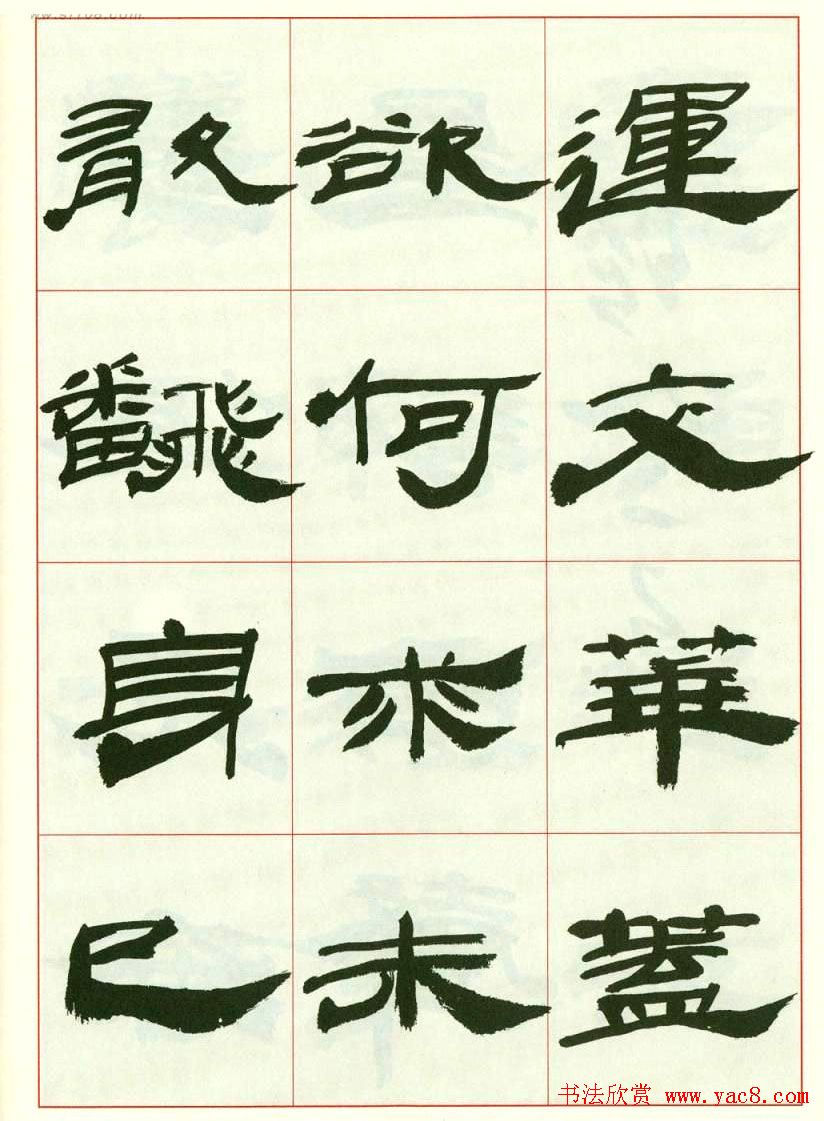 運交華蓋
欲何求未
敢飜身已
书法欣赏 www.yac8.com